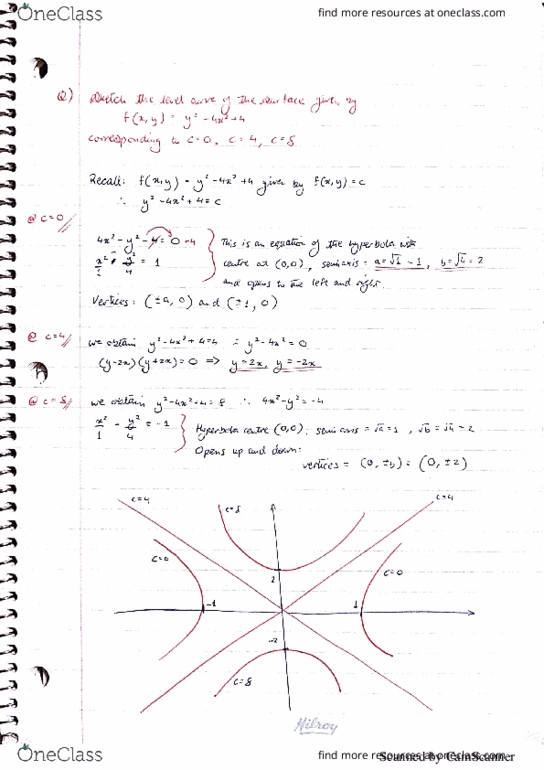 OneClass
find more resources at oneclass.com
Q) Sketch the level curve of the surface given by
f(x,y) = y² - 4x² + 4
corresponding to c=0, c=4, c=8
Recall: f(x,y) = y² - 4x² + 4 given by f(x,y) = c
∴ y² - 4x² + 4 = c
@ c=0//
4x² - y² - 4 = 0 + 4
This is an equation of the hyperbola with
x²/1 - y²/4 = 1
centre at (0,0), semiaxis = a=√1 = 1, b=√4 = 2
and opens to the left and right.
Vertices: (±a, 0) and (±1, 0)
@ c=4//
we obtain y² - 4x² + 4 = 4 ∴ y² - 4x² = 0
(y-2x)(y+2x) = 0 ⇒ y=2x, y=-2x
@ c=8//
we obtain y² - 4x² + 4 = 8 ∴ 4x² - y² = -4
x²/1 - y²/4 = -1
Hyperbola centre (0,0), semiaxis = √a = 1, √b = √4 = 2
Opens up and down:
vertices = (0, ±b) = (0, ±2)
c=4
c=8
c=4
c=0
c=0
2
-1
1
-2
c=8
Hilroy
OneClass
find more resources at oneclass.com
Scanned by CamScanner